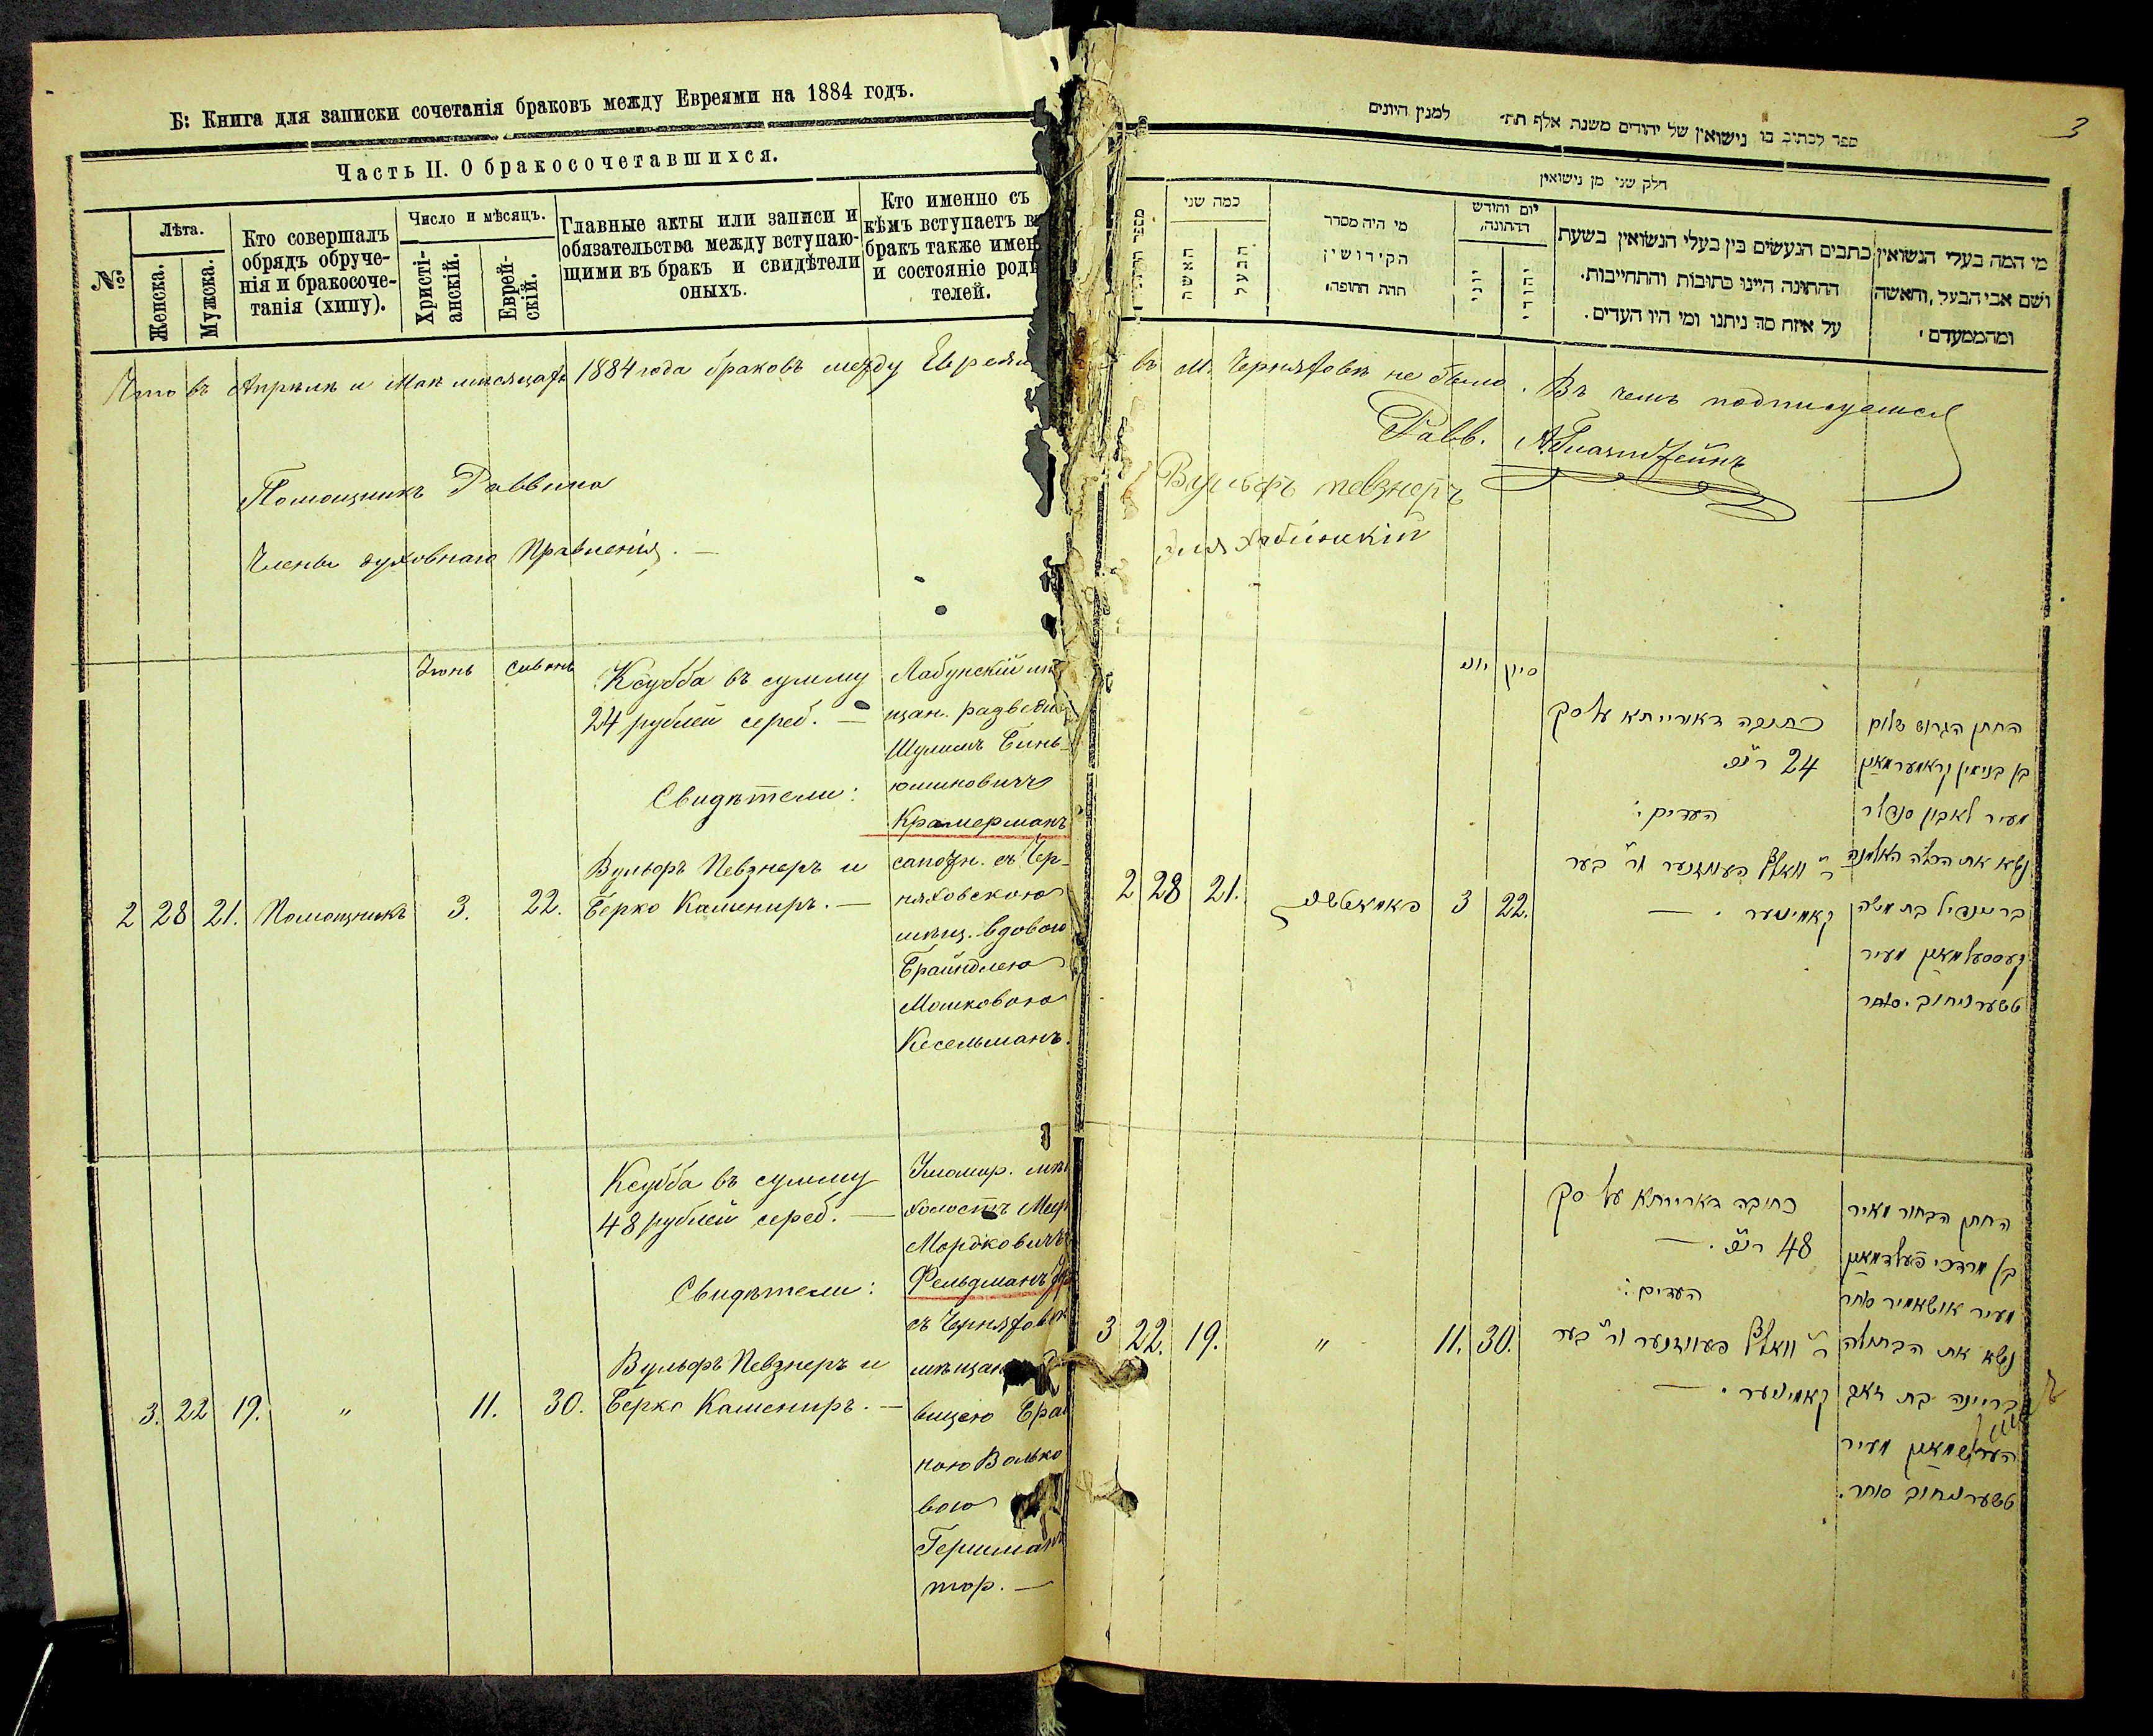 Б: Книга для записки сочетанія браковъ между Евреями на 1884 годъ.
Часть II. О бракосочетавшихся.
№
Лѣта.
Женска.
Мужска.
Кто совершалъ
обрядъ обруче-
нія и бракосоче-
танія (хипу).
Число и мѣсяцъ.
Христі-
анскій.
Еврей-
скій.
Главные акты или записи и
обязательства между вступаю-
щими въ бракъ и свидѣтели
оныхъ.
Кто именно съ
кѣмъ вступаетъ въ
бракъ также имен
и состояніе роди
телей.
Что въ Апрѣлѣ и Маѣ мѣсяцахъ 1884 года браковъ между Евреями
Помощникъ Раввина
Члены духовнаго Правленія. —
Іюнь
Сивонь
Ксубба въ сумму
24 рублей сереб. —
Свидѣтели:
Вульфъ Певзнеръ и
Берко Камениръ. —
Лабунскій мѣ
щан. разведен
Шулимъ Бинь-
юминовичъ
Крамерманъ
сапожн. съ Чер-
няховскою
мѣщ. вдовою
Брайндлею
Мошковою
Кесельманъ.
2 28 21. Помощникъ 3. 22.
Ксубба въ сумму
48 рублей сереб. —
Свидѣтели:
Вульфъ Певзнеръ и
Берко Камениръ. —
холостъ Меер
Мордковичъ
Фельдманъ
съ Черняховск
мѣщан
вицею
ною Волько
вою
Гершманъ
тор. —
3. 22 19. " 11. 30.
3
ספר לכתוב בו נישואין של יהודים משנת אלף תת׳ למנין היונים
חלק שני מן נישואין
כמה שני
האשה
הבעל
מי היה מסדר
הקידושין
תחת החופה,
יום וחודש
החתונה,
יוני
יהודי
כתבים הנעשים בין בעלי הנשואין בשעת
החתונה היינו כתובות והתחייבות.
על איזה סך ניתנו ומי היו העדים.
מי המה בעלי הנשואין
ושם אבי הבעל, והאשה
ומהממעדם
въ М. Черняховѣ не было. Въ чемъ подписуемся
Равв. А. Гиазштейнъ
Вульфъ певзнеръ
יוני
סיון
כתובה דאורייתא על סך
24 רו״כ
העדים:
ר׳ וואלף פעווזנער ור׳ בער
קאמינער. —
החתן הגרוש שלום
בן בנימין קראמערמאן
מעיר לאבון סנדלר
נשא את הכלה האלמנה
בריינדיל בת משה
קעסעלמאן מעיר
טשערניחוב. סוחר
2 28 21. פאמאטשניק 3 22.
כתובה דאורייתא על סך
48 רו״כ. —
העדים:
ר׳ וואלף פעווזנער ור׳ בער
קאמינער. —
החתן הבחור מאיר
בן מרדכי פעלדמאן
מעיר אושאמיר סוחר
נשא את הבתולה
בריינה בת וואלף
הערשמאן מעיר
טשערניחוב סוחר.
3 22. 19. " 11. 30.